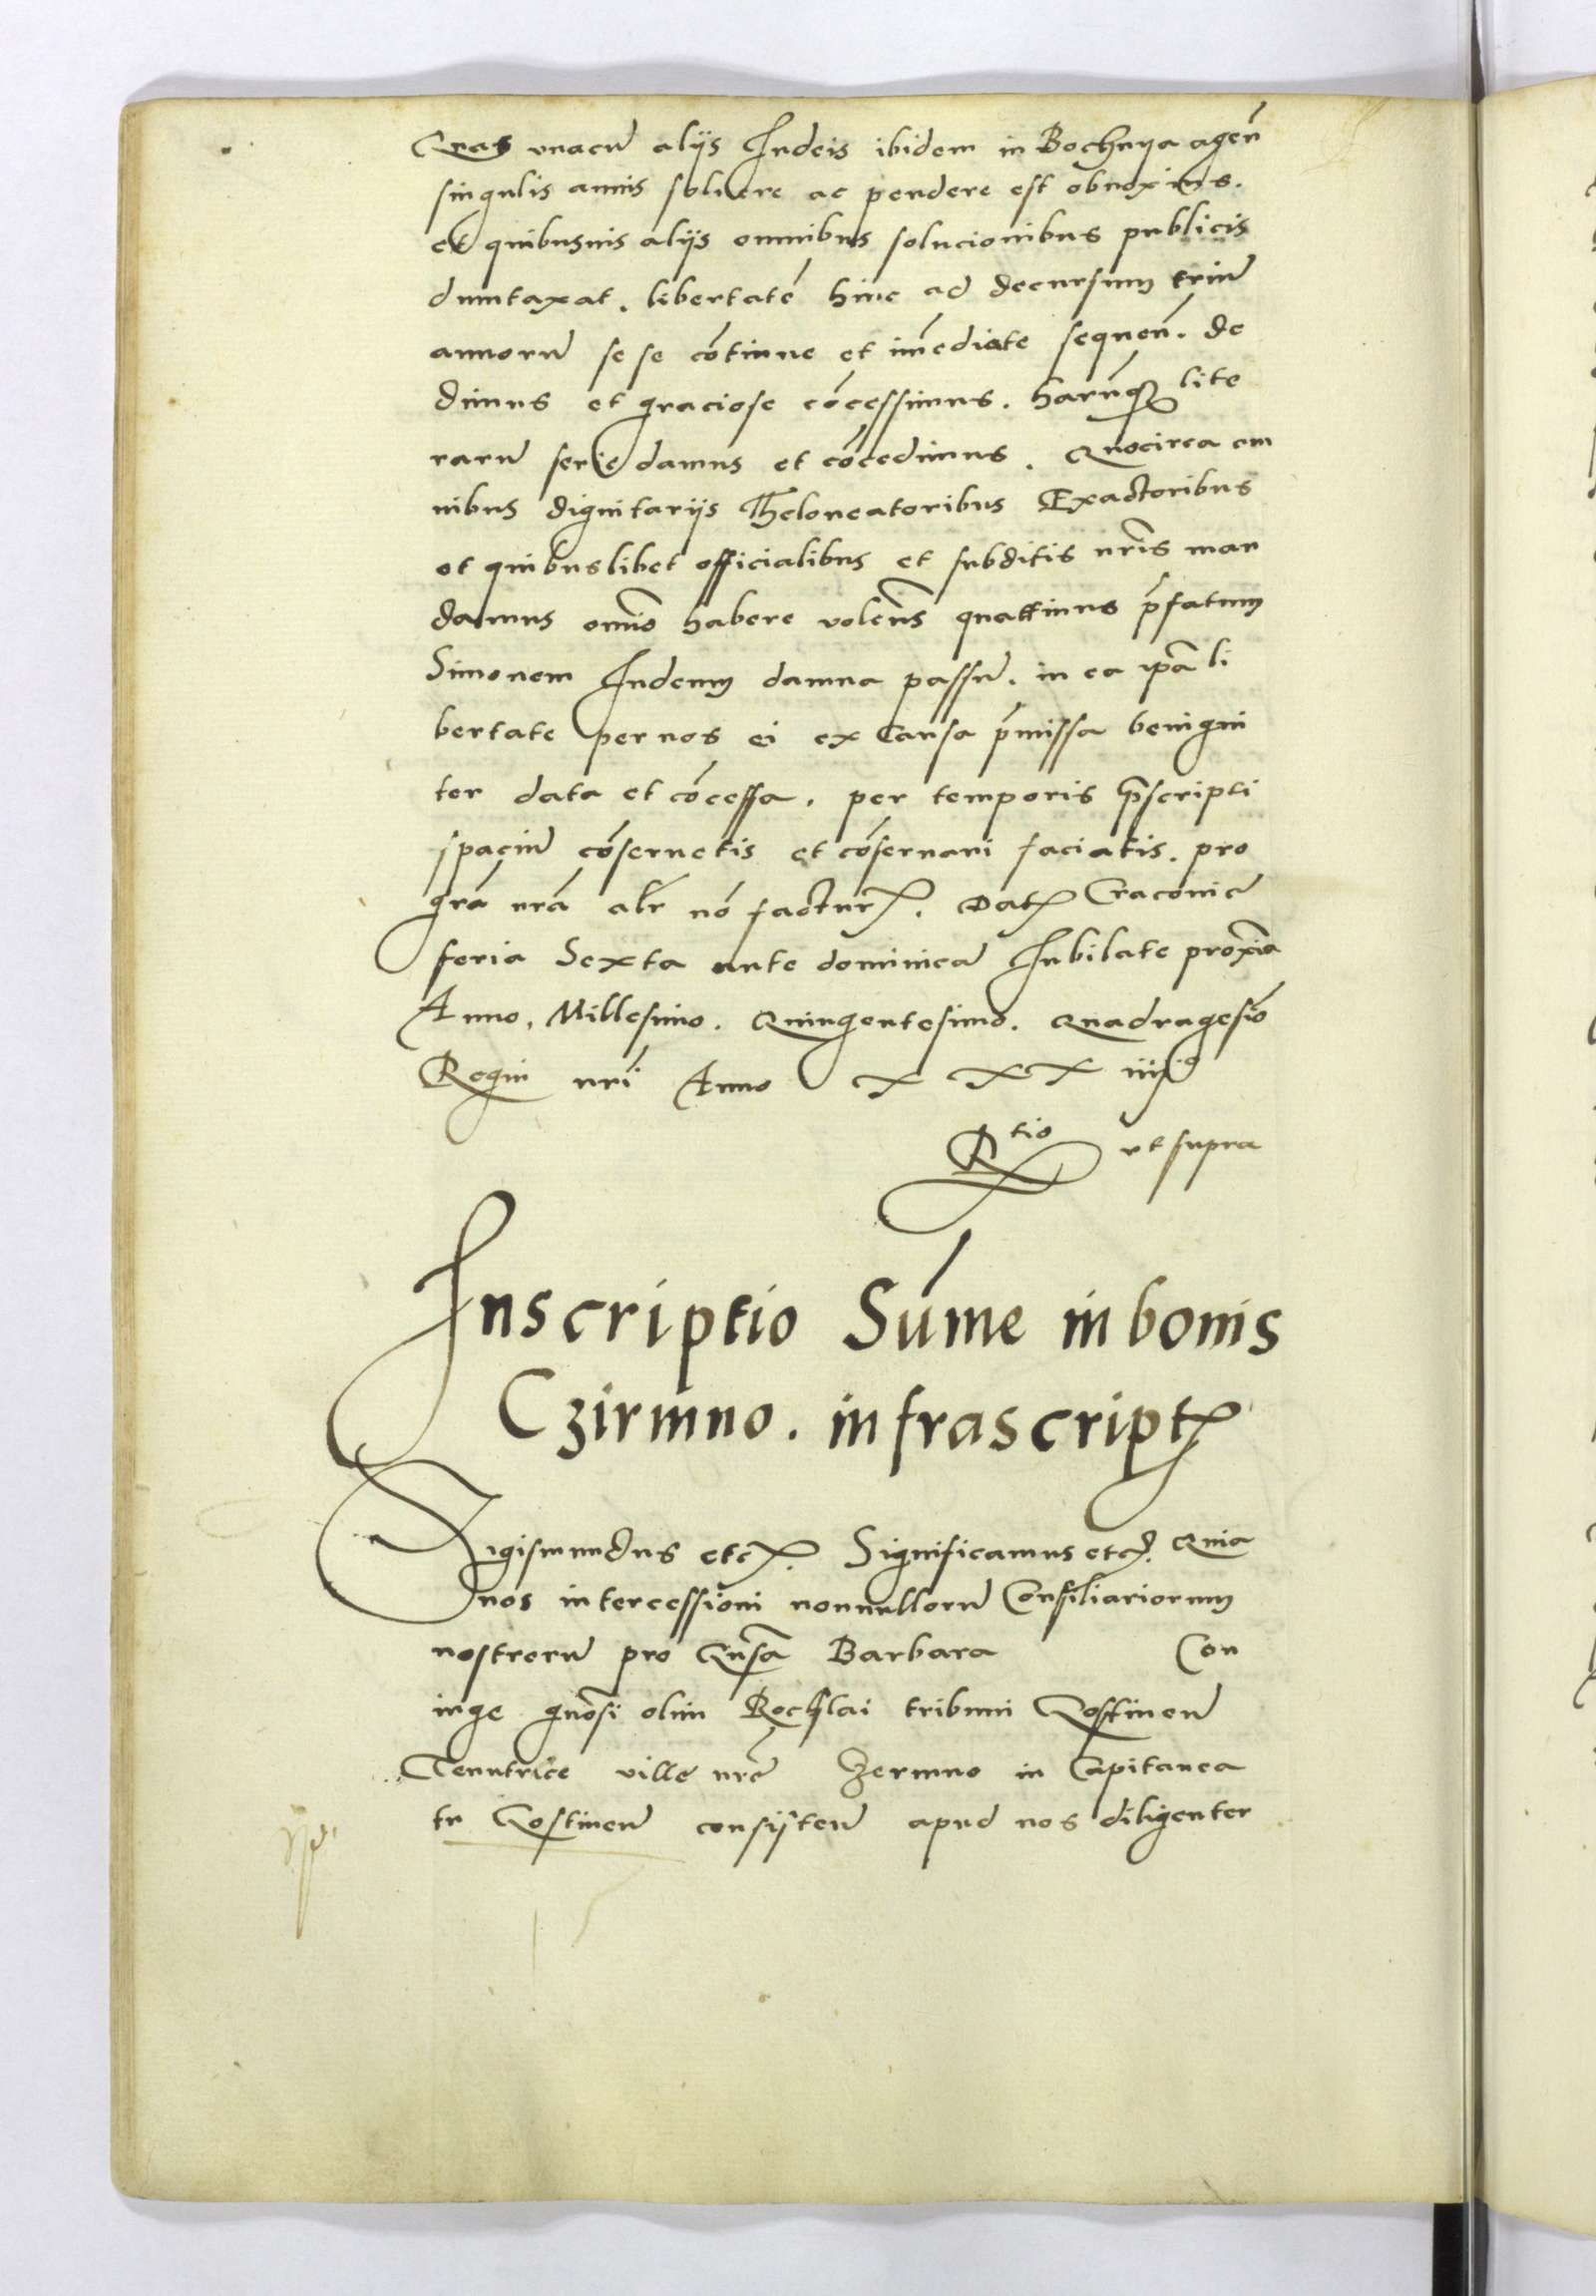 Quas vnacu̅ alijs Iudeis ibidem in Bochnya agen̅
singulis annis soluere ac pendere est obnoxius.
et quibusuis alijs omnibus solucionibus publicis
dumtaxat. libertate̅ hinc ad decursum triu̅
annoru̅ se se co̅tinue et im̅ediate sequen̅. de
dimus et graciose co̅cessimus. haru̅q3 lite
raru̅ serie damus et co̅cedimus. Quocirca om
nibus dignitarijs Theloneatoribus Exactoribus
et quibuslibet officialibus et subditis nr̅is man
damus om̅io habere volen̅s quattinus p̅fatum
Simonem Iudeum damna passu̅. in ea ip̅a li
bertate per nos ei ex causa p̅missa benigni
ter data et co̅cessa. per temporis p̅scripti
spaciu̅ co̅seruetis et co̅seruari faciatis. pro
gr̅a nr̅a alr̅ no̅ factur̅. Dat̅ Cracouie
feria Sexta ante dominica̅ Iubilate proxi̅a
Anno. Millesimo. Quingentesimo. Quadragesi̅o
Regni nr̅i Anno XXX iiijo
Rtio vt supra
Inscriptio Su̅me in bonis
Czirmno. infrascript̅
Sigismundus etc. Significamus etc. Quia
nos intercessioni nonnulloru̅ Consiliariorum
nostroru̅ pro G̅nsa Barbara Con
iuge gn̅osi olim Rochslai tribuni Gostinen̅
Tenutrice ville nr̅e Czermno in Capitanea
tu Gostinen̅ consisten̅ apud nos diligenter